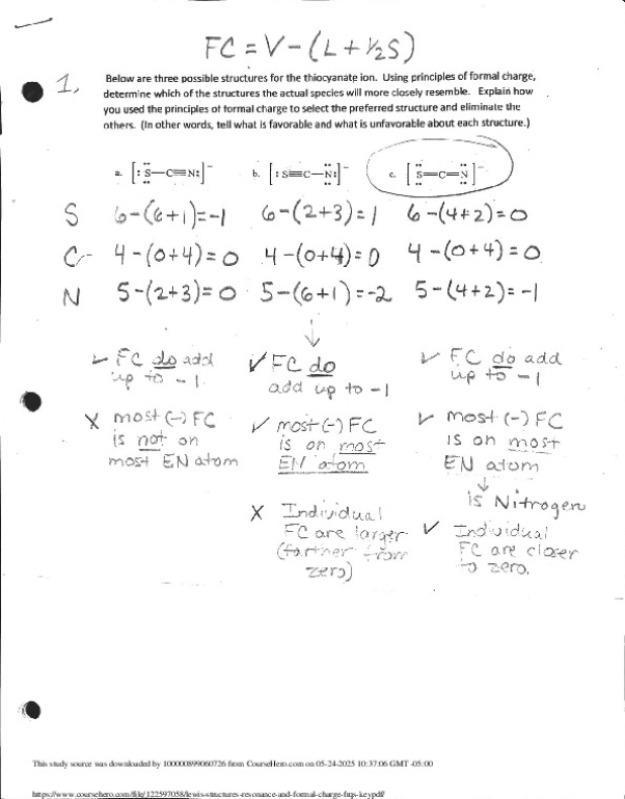 FC = V - (L + ½S)
1.
Below are three possible structures for the thiocyanate ion. Using principles of formal charge,
determine which of the structures the actual species will more closely resemble. Explain how
you used the principles of formal charge to select the preferred structure and eliminate the
others. (In other words, tell what is favorable and what is unfavorable about each structure.)
a. [:S̈—C≡N:]⁻ b. [:S≡C—N̈:]⁻ c. [S̈=C=N̈]⁻
S 6-(6+1)=-1 6-(2+3)=1 6-(4+2)=0
C 4-(0+4)=0 4-(0+4)=0 4-(0+4)=0
N 5-(2+3)=0 5-(6+1)=-2 5-(4+2)=-1
↓
✓ FC do add ✓ FC do ✓ FC do add
up to -1 add up to -1 up to -1
X most (-) FC ✓ most (-) FC ✓ most (-) FC
is not on is on most is on most
most EN atom EN atom EN atom
↓
is Nitrogen
X Individual ✓ Individual
FC are larger FC are closer
(farther from to zero.
zero)
This study source was downloaded by 100000899060726 from CourseHero.com on 05-24-2025 10:37:06 GMT -05:00
https://www.coursehero.com/file/122597058/lewis-structures-resonance-and-formal-charge-frqs-keypdf/